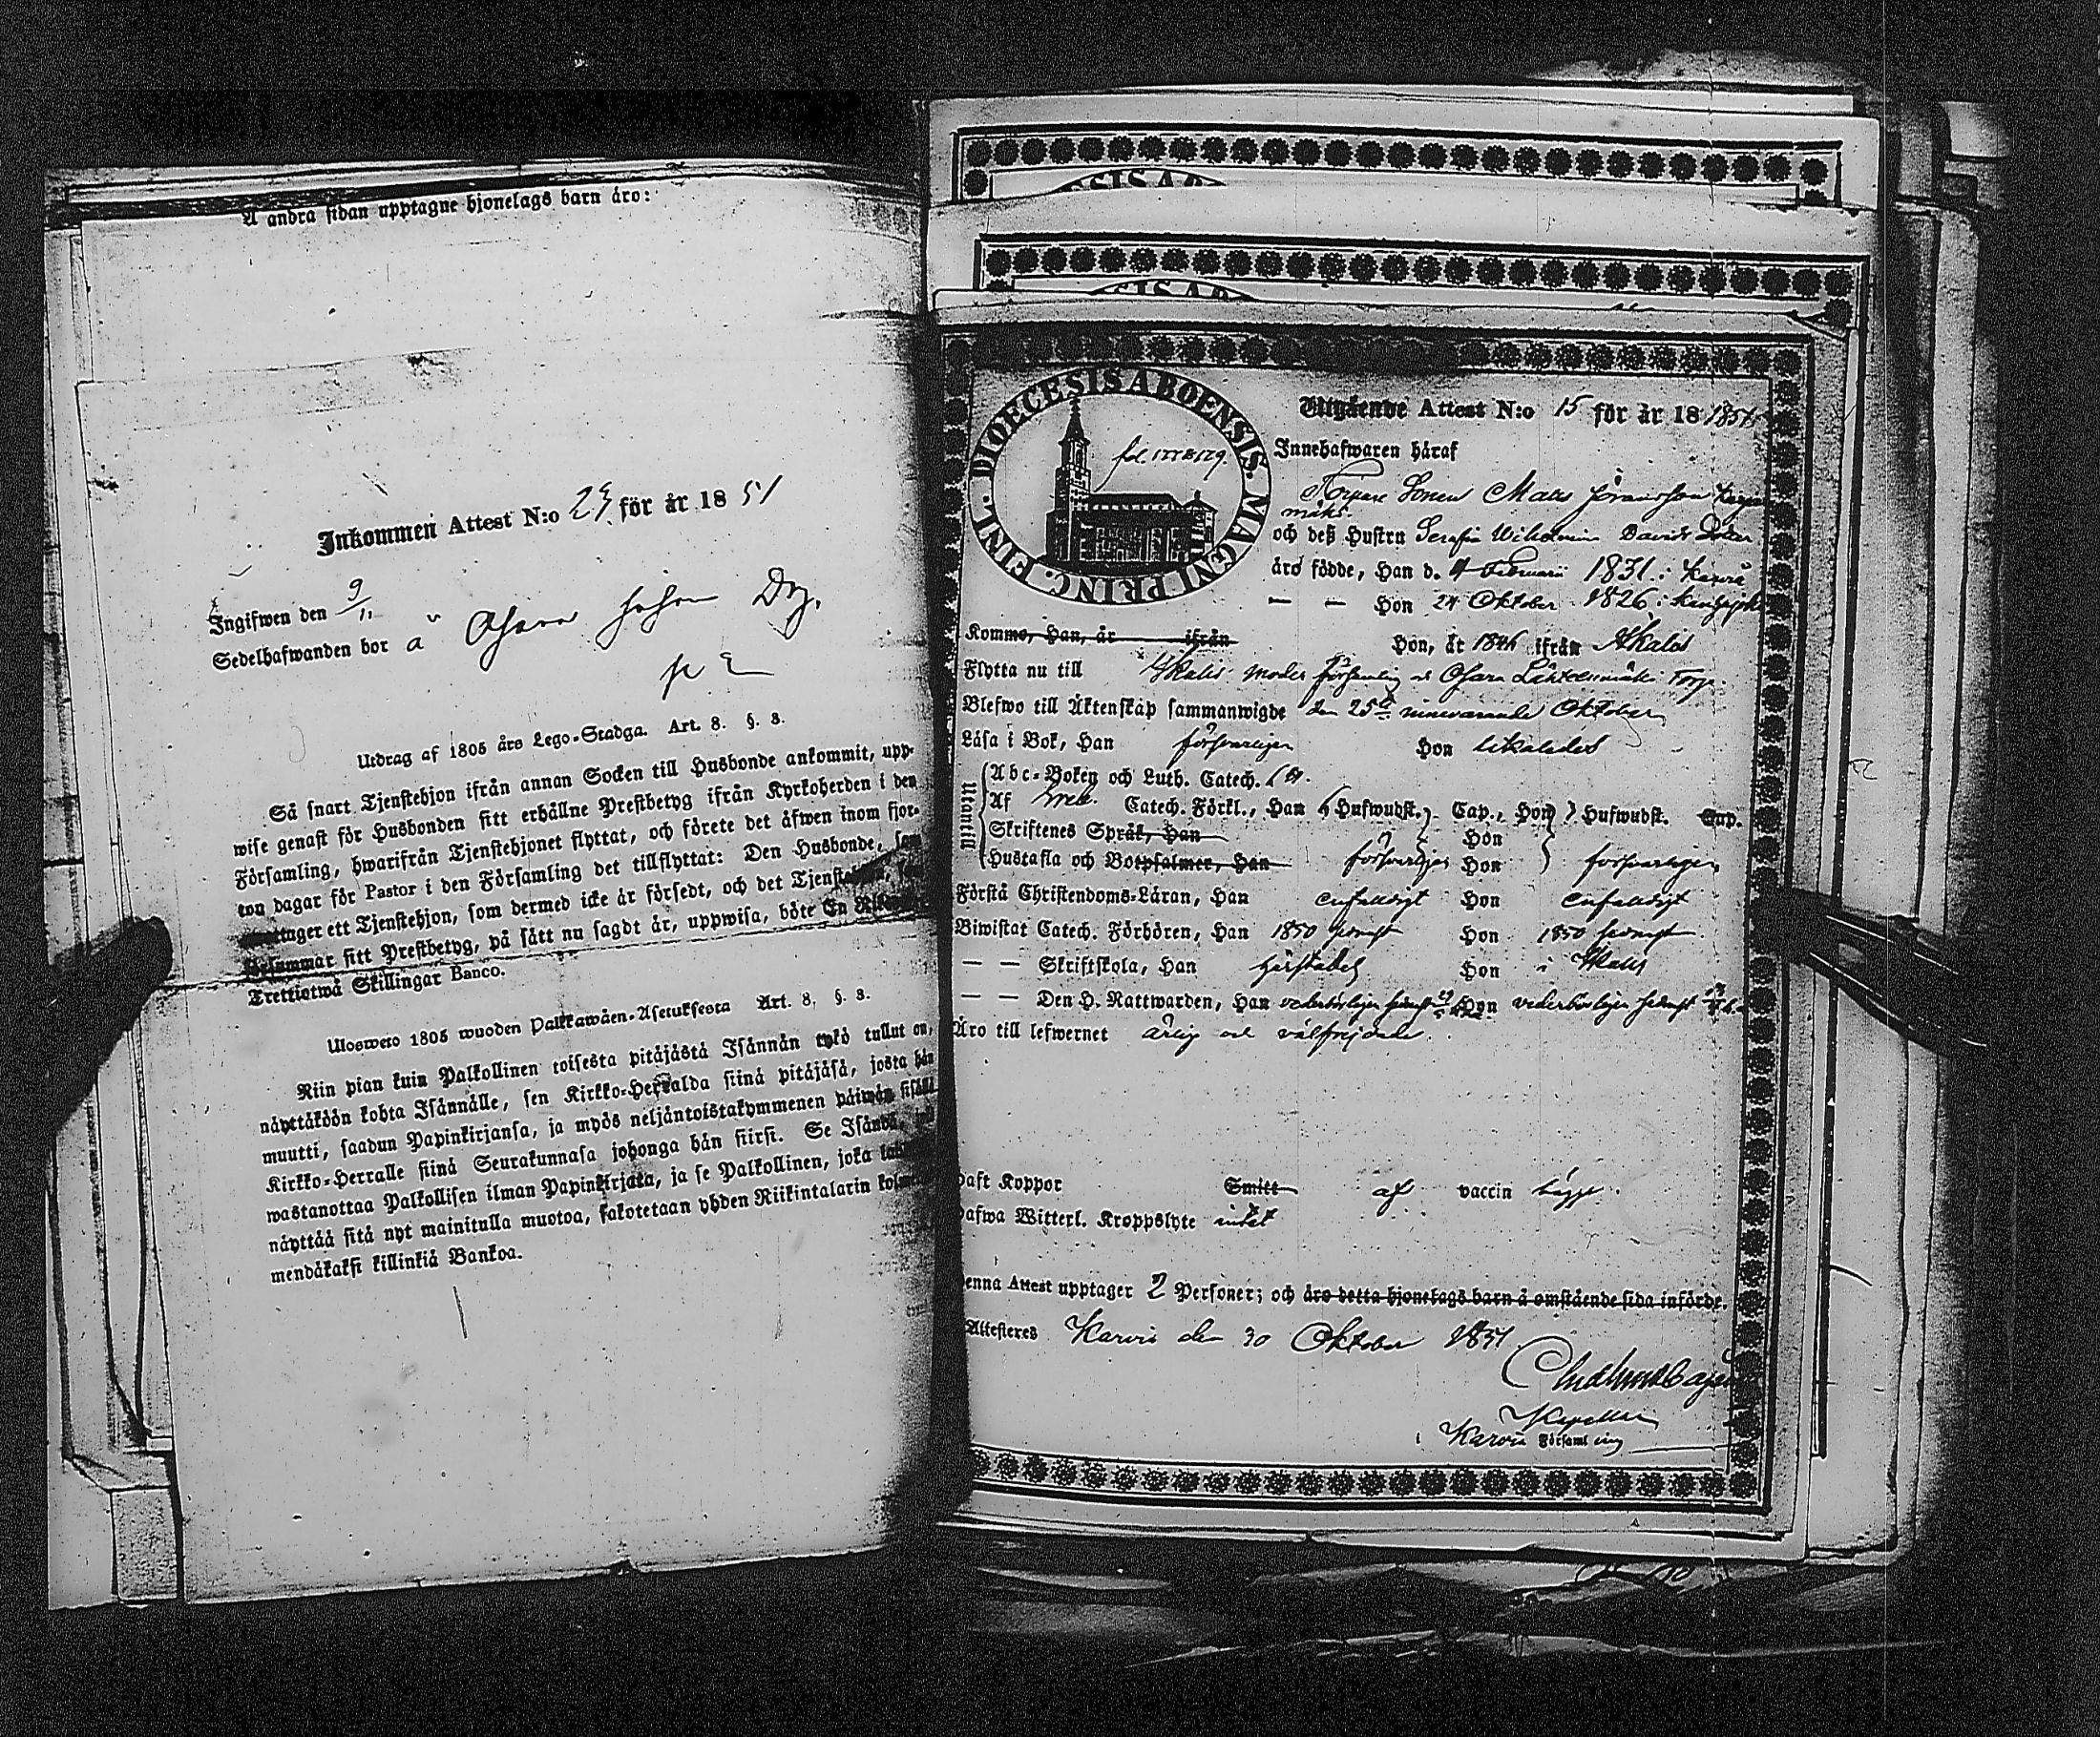 Å andra sidan upptagne hjonelags barn äro:
Inkommen Attest N:o 23 för år 1851
Ingifwen den 9/11
Sedelhafwanden bor å
Utdrag af 1805 års Lego-Stadga. Art. 8. §. 3.
Så snart Tjenstehjon ifrån annan Socken till Husbonde ankommit, upp-
wise genast för Husbonden sitt erhållne Prestbetyg ifrån Kyrkoherden i den
Församling, hwarifrån Tjenstehjonet flyttat, och förete det äfwen inom fjor-
ton dagar för Pastor i den Församling det tillflyttat: Den Husbonde, som
mottager ett Tjenstehjon, som dermed icke är försedt, och det Tjenstehjon,
försummar sitt Prestbetyg, på sätt nu sagdt är, uppwisa, böte En
Trettiotwå Skillingar Banco.
Uloswero 1805 wuoden Palkkawäen-Asetuksesta Art. 8. §. 3.
Niin pian kuin Palkollinen toisesta pitäjästä Isännän tykö tullut on,
näyttäköön kohta Isännälle, sen Kirkko-Herralda siinä pitäjäsä, josta hän
muutti, saadun Papinkirjansa, ja myös neljäntoistakymmenen päiwän sisällä
Kirkko-Herralle siinä Seurakunnasa johonga hän siirsi. Se Isändä,
wastanottaa Palkollisen ilman Papinkirjata, ja se Palkollinen, joka
näyttää sitä nyt mainitulla muotoa, sakotetaan yhden Riikintalarin kolme
mendäkaksi killinkiä Bankoa.
FINL. DIOECESIS ABOENSIS. MAGNI PRINC.
fol. 177 & 179.
Utgående Attest N:o 15 för år 18 1851
Innehafwaren häraf
Torpare Sonen Mats Göransson
och deß Hustru Serafia Wilhelmina Davids Dotter
äro födde, Han d. 4 Februarii 1831 i Karvia
— — Hon 24 Oktober 1826 i
Komme, Han, år ifrån Hon, år 1846 ifrån Ikalis
Flytta nu till Ikalis moder församling
Blefwo till Äktenskap sammanwigde den 25te innevarande Oktober
Läsa i Bok, Han försvarligen Hon likaledes
Utantill
Abc-Boken och Luth. Catech.
Af Catech. Förkl., Han 6 Hufwudst. Cap., Hon Hufwudst. Cap.
Skriftenes Språk, Han Hon
Hustafla och Botpsalmer, Han försvarligen Hon försvarligen
Förstå Christendoms-Läran, Han enfaldigt Hon enfaldigt
Biwistat Catech. Förhören, Han 1850 sednast Hon 1850 sednast
— — Skriftskola, Han härstädes Hon i Ikalis
— — Den H. Nattwarden, Han vederbörligen sednast Hon vederbörligen sednast
Äro till lefwernet ärlig och välfrejdade
Haft Koppor Smitt af vaccin
Hafwa Witterl. Kroppslyte intet
Denna Attest upptager 2 Personer; och äro detta hjonelags barn å omstående sida införde.
Attesteres Karvia den 30 Oktober 1851
Kapellan
i Karvia Församling